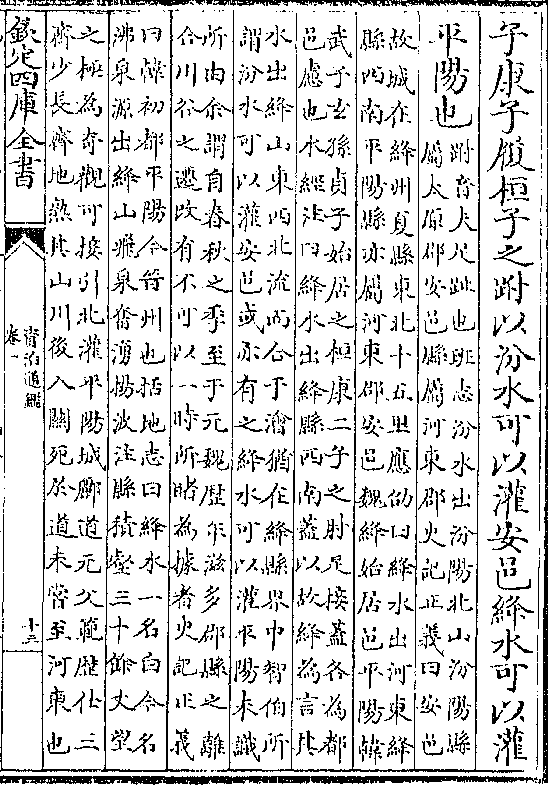 子康子履桓子之跗以汾水可以灌安邑絳水可以灌
平陽也
跗音夫足趾也班志汾水出汾陽北山汾陽縣
屬太原郡安邑縣屬河東郡史記正義曰安邑
故城在絳州夏縣東北十五里應劭曰絳水出河東絳
縣西南平陽縣亦屬河東郡安邑魏絳始居邑平陽韓
武子玄孫貞子始居之桓康二子之肘足接蓋各為都
邑慮也水經注曰絳水出絳縣西南蓋以故絳為言其
水出絳山東西北流而合于澮猶在絳縣界中智伯所
謂汾水可以灌安邑或亦有之絳水可以灌平陽未識
所由余謂自春秋之季至于元魏歷年滋多郡縣之離
合川谷之遷改有不可以一時所睹為據者史記正義
曰韓初都平陽今晉州也括地志曰絳水一名白今名
沸泉源出絳山飛泉奮湧揚波注縣積壑三十餘丈望
之極為奇觀可接引北灌平陽城酈道元父範歷仕三
齊少長齊地熟其山川後入關死於道未嘗至河東也
欽定四庫全書
資治通鑑
卷一
十三